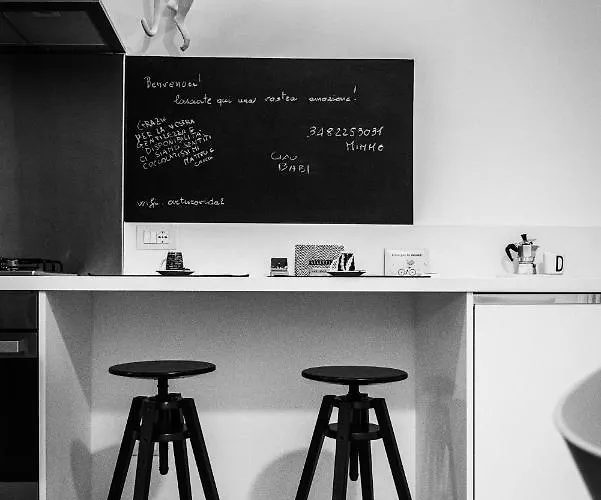 Benvenuti!
lasciate qui una vostra emozione!
GRAZIE
PER LA VOSTRA
GENTILEZZA E
DISPONIBILITÀ
CI SIAMO SENTITI
COCCOLATISSIMI
3482253031
MIMMO
CIAO
BABI
wifi: arturovidal